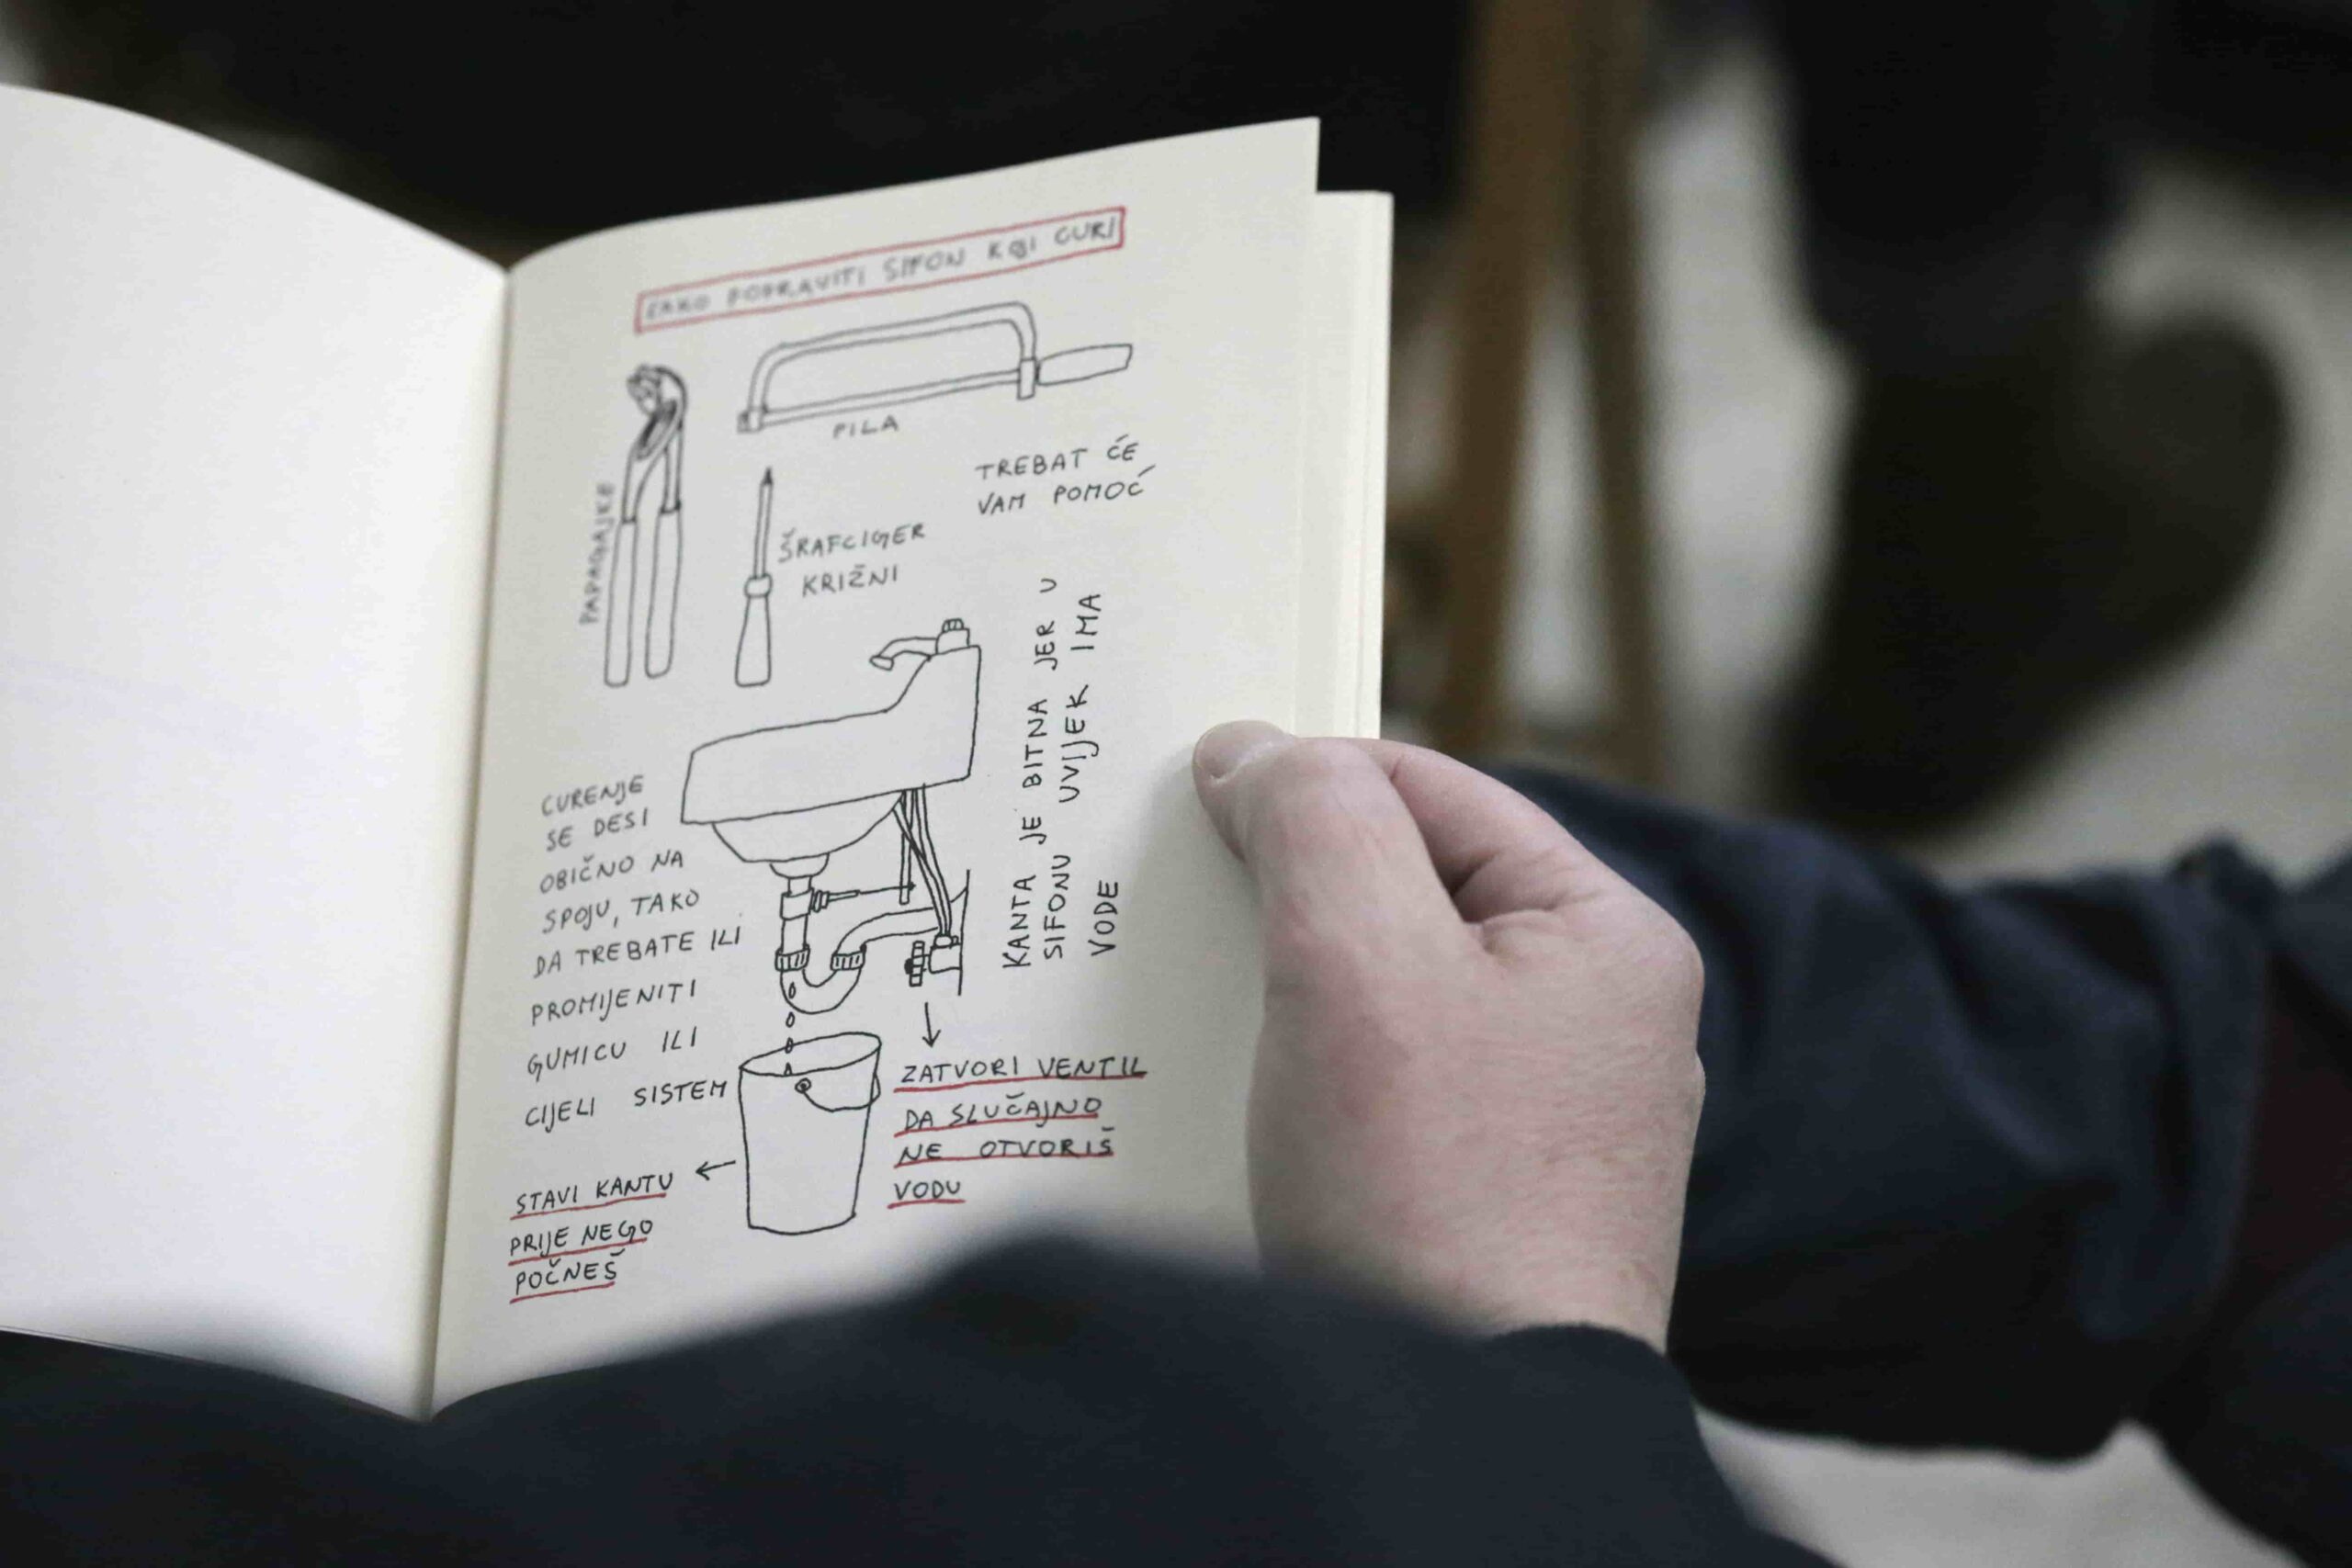 KAKO POPRAVITI SIFON KOJI CURI
PILA
PAPAGAJKE
TREBAT ĆE
VAM POMOĆ
ŠRAFCIGER
KRIŽNI
KANTA JE BITNA JER U
SIFONU UVIJEK IMA
VODE
CURENJE
SE DESI
OBIČNO NA
SPOJU, TAKO
DA TREBATE ILI
PROMIJENITI
GUMICU ILI
CIJELI SISTEM
ZATVORI VENTIL
DA SLUČAJNO
NE OTVORIŠ
VODU
STAVI KANTU
PRIJE NEGO
POČNEŠ